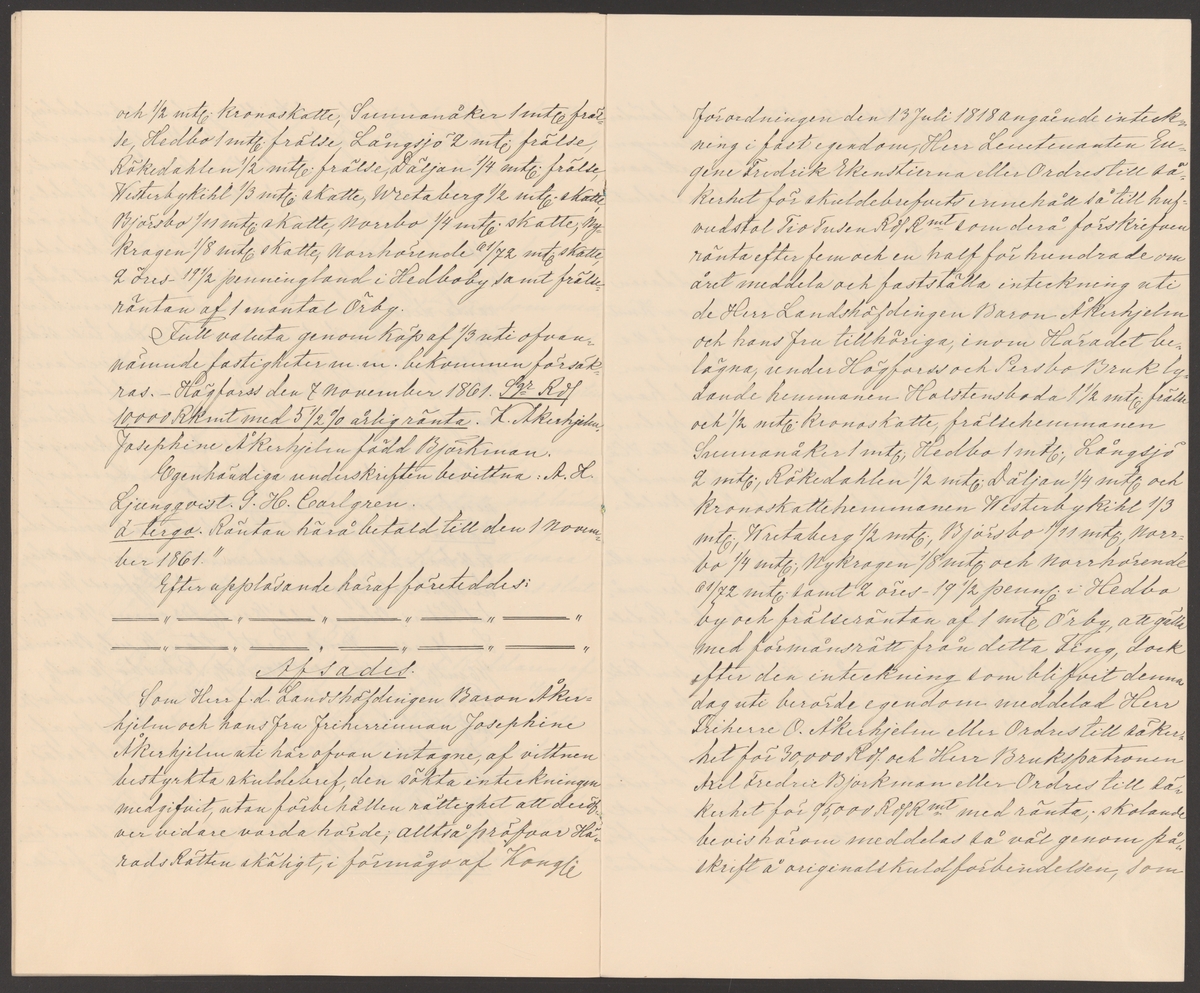 och 1/2 mtl: kronoskatte, Sunnanåker 1 mtl fräl-
se, Hedbo 1 mtl: frälse, Långsjö 2 mtl: frälse,
Rökedahlen 1/2 mtl: frälse, Däljan 1/4 mtl: frälse,
Westerbykihl 1/3 mtl: skatte, Wretaberg 1/2 mtl: skatte
Björsbo 1/11 mtl: skatte, Norrbo 1/4 mtl: skatte, Ny-
krogen 1/8 mtl: skatte, Norrhörende 61/72 mtl: skatte,
2 öres- 19 1/2 penningland i Hedboby samt frälse-
räntan af 1 mantal Örby.
Full valuta genom köp af 1/3 uti ofvan-
nämnde fastigheter m. m. bekommen försäk-
ras. – Högforss den 7 November 1861. Sgr Rdr
10000 Rkmt med 5 1/2 % årlig ränta. K. Åkerhjelm.
Josephine Åkerhjelm född Björkman.
Egenhändiga underskriften bevittna: A. H.
Ljungqvist. G. H. Carlgren.
à tergo. Räntan härå betald till den 1 Novem-
ber 1861."
Efter uppläsande häraf företeddes:
Afsades.
Som Herr f. d. Landshöfdingen Baron Åker-
hjelm och hans fru Friherrinnan Josephine
Åkerhjelm uti här ofvan intagne, af vittnen
bestyrkta skuldebref, den sökta inteckningen
medgifvit, utan förbehållen rättighet att deröf-
ver vidare varda hörde; alltså pröfvar Hä-
rads Rätten skäligt, i förmågo af Kongl:
Förordningen den 13 Juli 1818 angående inteck-
ning i fast egendom, Herr Lieutenanten Eu-
gene Fredrik Ekenstierna eller Ordres till sä-
kerhet för skuldebrefvets innehåll så till huf-
vudstol Tio Tusen Rdr Rmt som derå förskrifven
ränta efter fem och en half för hundrade om
året meddela och fastställa inteckning uti
de Herr Landshöfdingen Baron Åkerhjelm
och hans fru tillhöriga, inom Häradet be-
lägna, under Högforss och Persbo Bruk ly-
dande hemmanen Holstensboda 1 1/2 mtl: frälse
och 1/2 mtl: kronoskatte, frälsehemmanen
Sunnanåker 1 mtl; Hedbo 1 mtl:, Långsjö
2 mtl:, Rökedahlen 1/2 mtl: Däljan 1/4 mtl: och
kronoskattehemmanen Westerbykihl 1/3
mtl:, Wretaberg 1/2 mtl:, Björsbo 1/11 mtl:, Norr-
bo 1/4 mtl:, Nykrogen 1/8 mtl: och Norrhörende
61/72 mtl: samt 2 öres- 19 1/2 penng: i Hedbo
by och frälseräntan af 1 mtl: Örby, att gälla
med förmånsrätt från detta Ting, dock
efter den inteckning som blifvit denna
dag uti berörde egendom meddelad Herr
Friherre O. Åkerhjelm eller Ordres till säker-
het för 30,000 Rdr. och Herr Brukspatronen
Axel Fredric Björkman eller Ordres till sä-
kerhet för 15,000 Rdr Rmt med ränta; skolande
bevis härom meddelas så väl genom på-
skrift å originalskuldförbindelsen, som